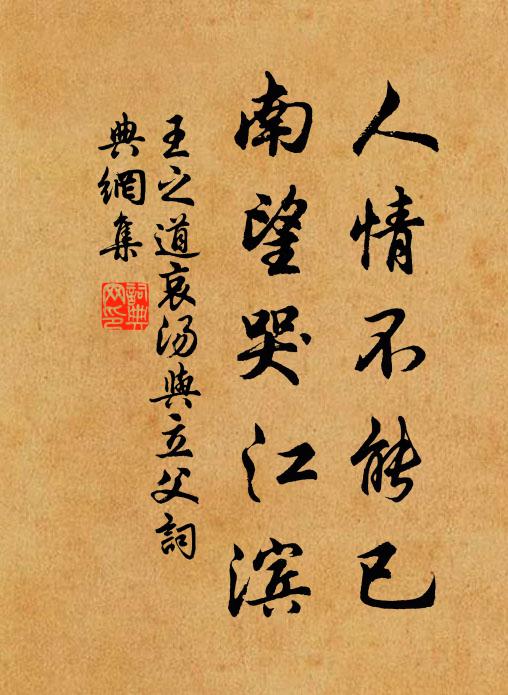 人情不能已
南望哭江滨
王之道哀汤与立父词
典網集
詞典網印